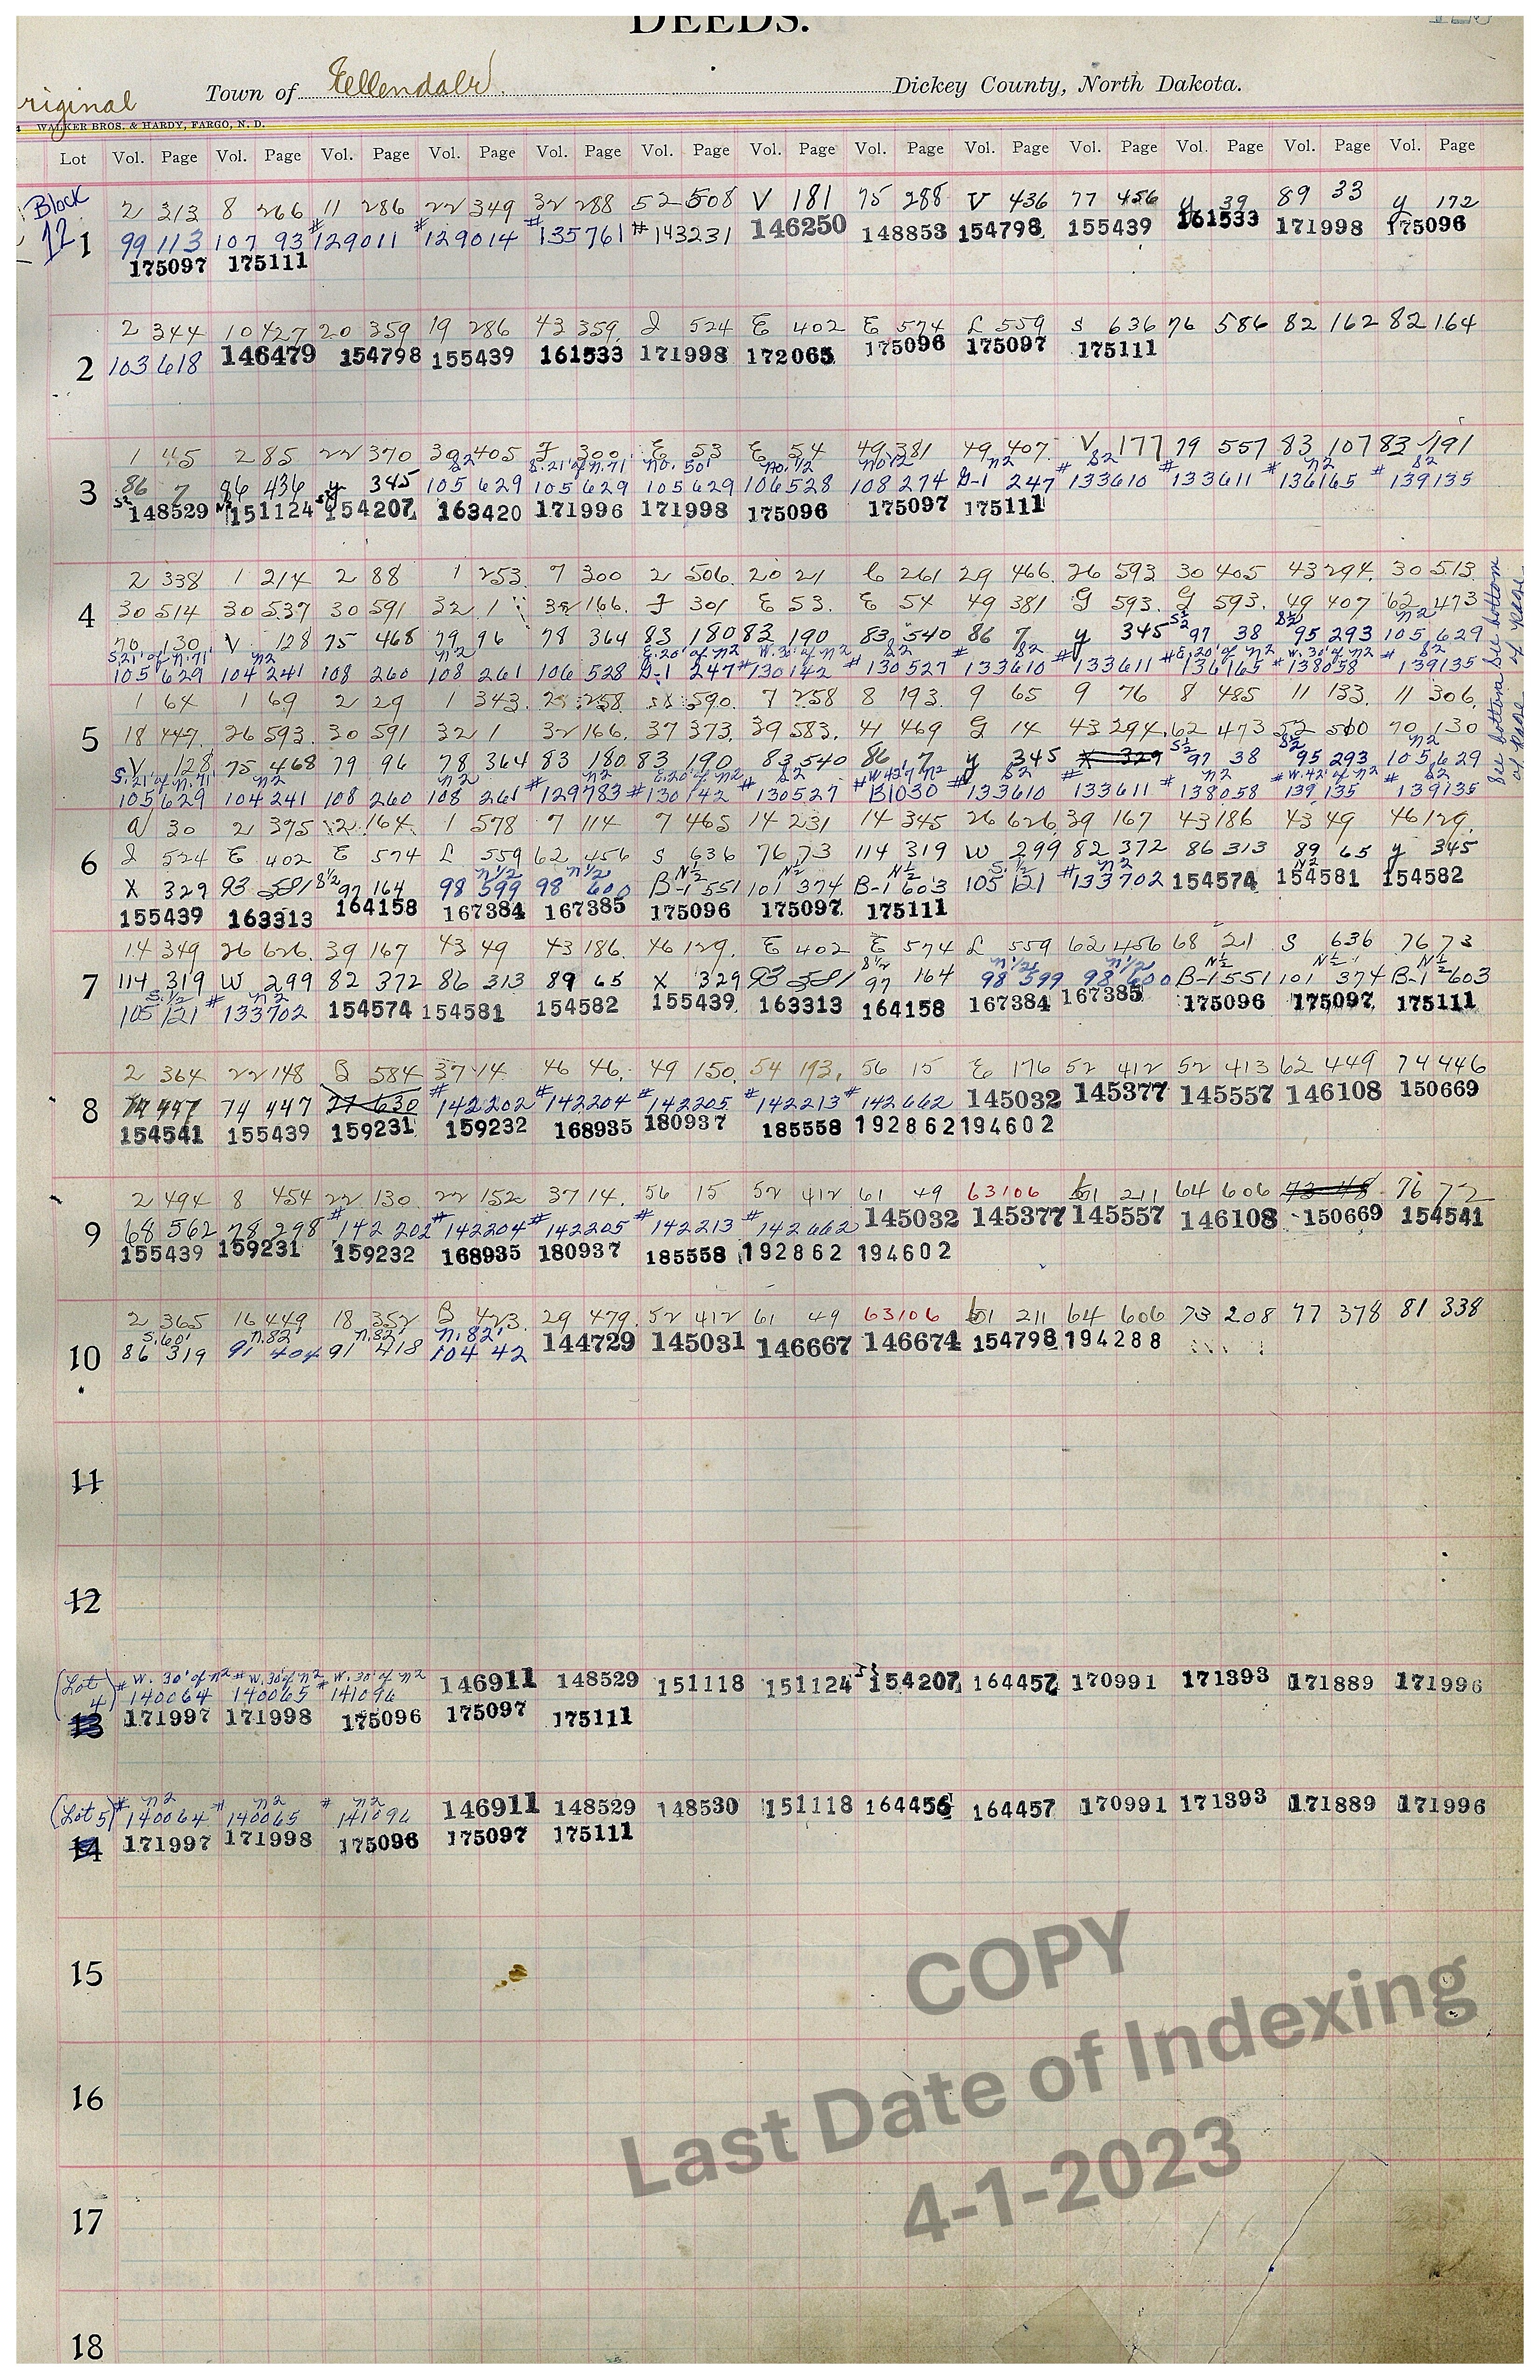 DEEDS.
riginal Town of Ellendale Dickey County, North Dakota.
WALKER BROS. & HARDY, FARGO, N. D.
Lot Vol. Page Vol. Page Vol. Page Vol. Page Vol. Page Vol. Page Vol. Page Vol. Page Vol. Page Vol. Page Vol. Page Vol. Page Vol. Page
Block 2 313 8 266 11 286 22 349 32 288 52 508 V 181 75 288 V 436 77 456 y 39 89 33 y 172
12 1 99 113 107 93 #129011 #129014 #135761 #143231 146250 148853 154798 155439 161533 171998 175096
175097 175111
2 344 10 427 20 359 19 286 43 359 J 524 E 402 E 574 L 559 S 636 76 586 82 162 82 164
2 103 618 146479 154798 155439 161533 171998 172065 175096 175097 175111
1 45 2 85 22 370 30 405 J 300 E 53 E 54 49 381 49 407 V 177 79 557 83 107 83 191
S2 S.21' of N.71' No. 50' No. 1/2 No 1/2 N2 S2 N2 S2
3 86 7 86 436 y 345 105 629 105 629 105 629 106 528 108 274 G-1 247 #133610 #133611 #136165 #139135
148529 151124 154207 163420 171996 171998 175096 175097 175111
2 338 1 214 2 88 1 253 7 300 2 506 20 21 C 261 29 466 26 593 30 405 43 294 30 513
4 30 514 30 537 30 591 32 1 32 166 J 301 E 53 E 54 49 381 G 593 G 593 49 407 62 473
S½ S½ N2
70 130 V 128 75 468 79 96 78 364 83 180 83 190 83 540 86 7 y 345 97 38 95 293 105 629
S.21' of N.71' N2 N2 E.20' of N2 W.30' of N2 S2 S2 E.20' of N2 W.30' of N2 S2
105 629 104 241 108 260 108 261 106 528 G-1 247 #130142 #130527 #133610 #133611 #136165 #138058 #139135
See bottom of page
1 64 1 69 2 29 1 343 25 258 590 7 258 8 193 9 65 9 76 8 485 11 133 11 306
5 18 447 26 593 30 591 32 1 32 166 37 373 39 583 41 469 G 14 43 294 62 473 52 500 70 130
S½ S½ N2
V 128 75 468 79 96 78 364 83 180 83 190 83 540 86 7 y 345 X 329 97 38 95 293 105 629
S.21' of N.71' N2 N2 N2 E.20' of N2 S2 W42' N2 S2 N2 W.42' of N2 S2
105 629 104 241 108 260 108 261 #129783 #130142 #130527 #131030 #133610 #133611 #138058 #139135 #139135
See bottom of page
a 30 2 375 2 164 1 578 7 114 7 465 14 231 14 345 26 626 39 167 43 186 43 49 46 129
6 J 524 E 402 E 574 L 559 62 456 S 636 76 73 114 319 W 299 82 372 86 313 89 65 y 345
S½ N½ N½ N½ N½ N½ S½ N2
X 329 93 581 97 164 98 599 98 600 B-1 551 101 374 B-1 603 105 121 #133702 154574 154581 154582
155439 163313 164158 167384 167385 175096 175097 175111
14 349 26 626 39 167 43 49 43 186 46 129 E 402 E 574 L 559 62 456 68 21 S 636 76 73
S½ N½ N½ N½ N½ N½
7 114 319 W 299 82 372 86 313 89 65 X 329 93 581 97 164 98 599 98 600 B-1 551 101 374 B-1 603
S.½ N2
105 121 #133702 154574 154581 154582 155439 163313 164158 167384 167385 175096 175097 175111
2 364 22 148 584 37 14 46 46 49 150 54 193 56 15 E 176 52 412 52 413 62 449 74 446
8 74 447 74 447 77 630 #142202 #142204 #142205 #142213 #142662 145032 145377 145557 146108 150669
154541 155439 159231 159232 168935 180937 185558 192862 194602
2 494 8 454 22 130 22 152 37 14 56 15 52 412 61 49 63 106 61 211 64 606 73 48 76 72
9 68 562 78 298 #142202 #142204 #142205 #142213 #142662 145032 145377 145557 146108 150669 154541
155439 159231 159232 168935 180937 185558 192862 194602
2 365 16 449 18 352 B 423 29 479 52 412 61 49 63 106 61 211 64 606 73 208 77 378 81 338
S.60' N.82' N.82' N.82'
10 86 319 91 404 91 418 104 42 144729 145031 146667 146674 154798 194288
11
12
(Lot 4) # W. 30' of N2 # W. 30' of N2 W. 30' of N2
140064 140065 #141096 146911 148529 151118 151124 154207 164457 170991 171393 171889 171996
13 171997 171998 175096 175097 175111
N2 N2 N2
(Lot 5) #140064 #140065 #141096 146911 148529 148530 151118 164456 164457 170991 171393 171889 171996
14 171997 171998 175096 175097 175111
15
16
17
18
COPY
Last Date of Indexing
4-1-2023